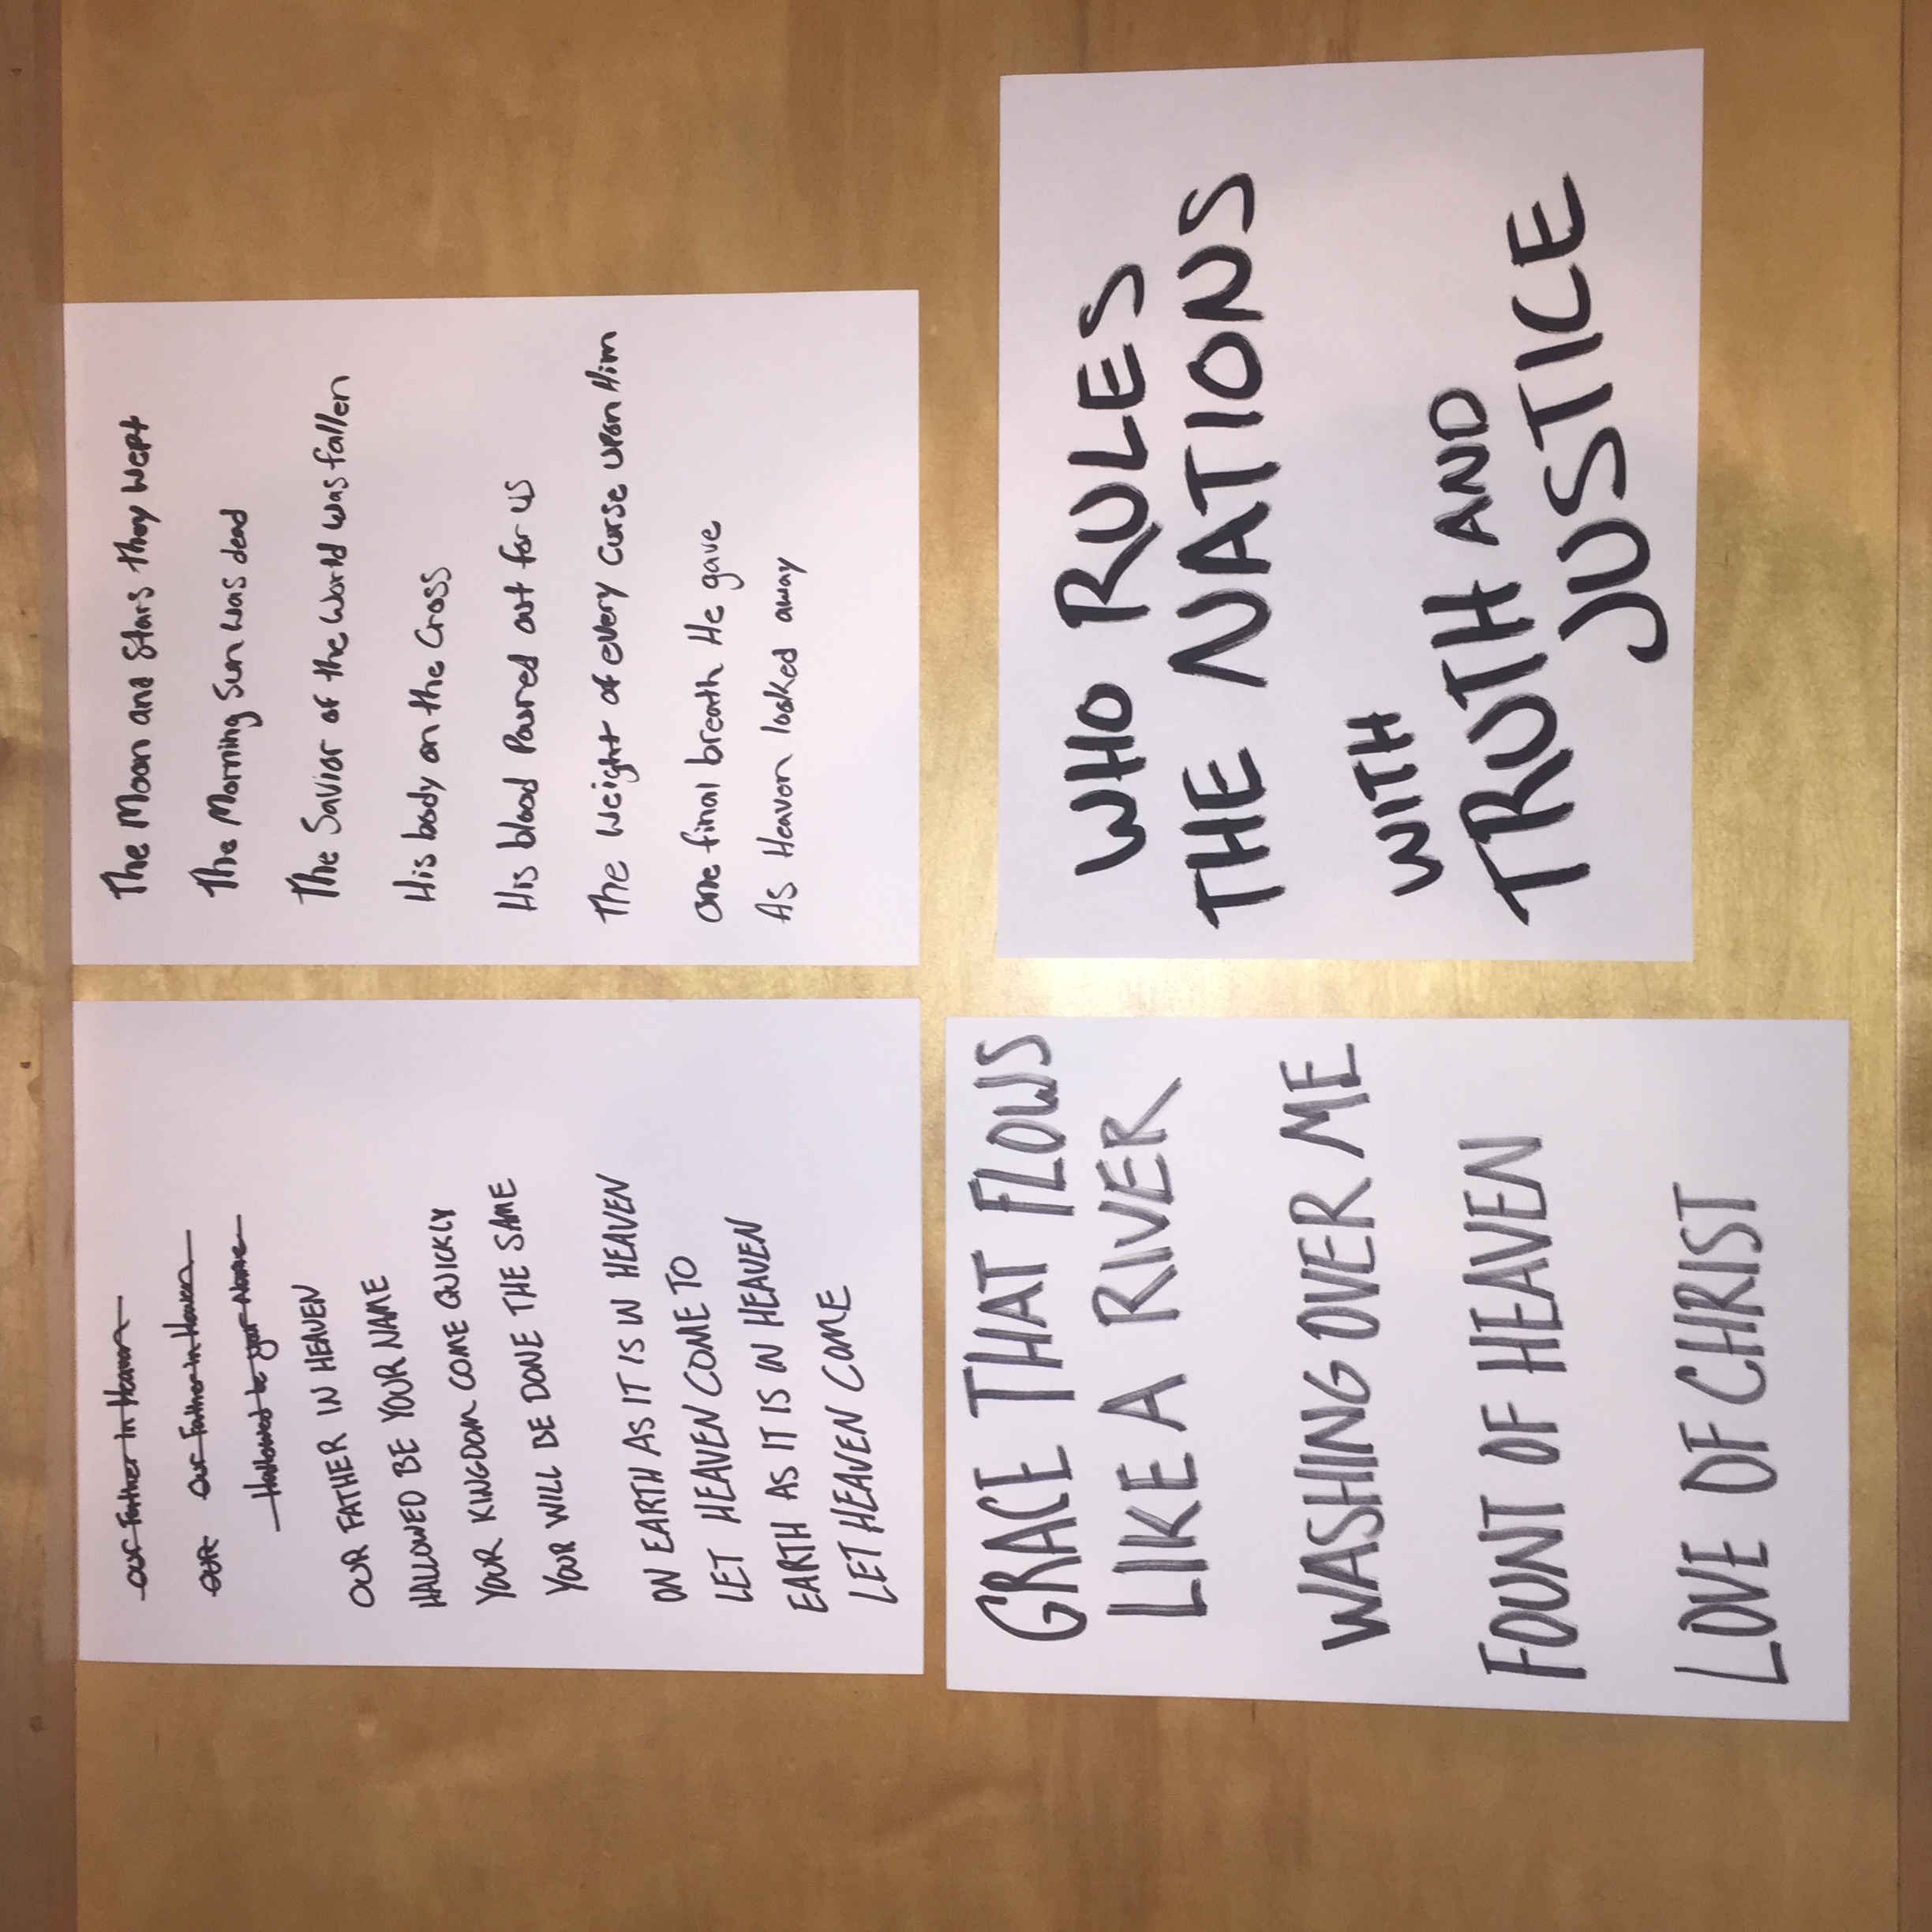 Our Father in Heaven
our Our Father in Heaven
Hallowed be your Name
OUR FATHER IN HEAVEN
HALLOWED BE YOUR NAME
YOUR KINGDOM COME QUICKLY
YOUR WILL BE DONE THE SAME
ON EARTH AS IT IS IN HEAVEN
LET HEAVEN COME TO
EARTH AS IT IS IN HEAVEN
LET HEAVEN COME
The Moon and Stars they wept
The Morning Sun was dead
The Savior of the World was fallen
His body on the Cross
His blood Poured out for us
The weight of every curse upon Him
One final breath He gave
As Heaven looked away
GRACE THAT FLOWS
LIKE A RIVER
WASHING OVER ME
FOUNT OF HEAVEN
LOVE OF CHRIST
WHO RULES
THE NATIONS
WITH
TRUTH AND
JUSTICE